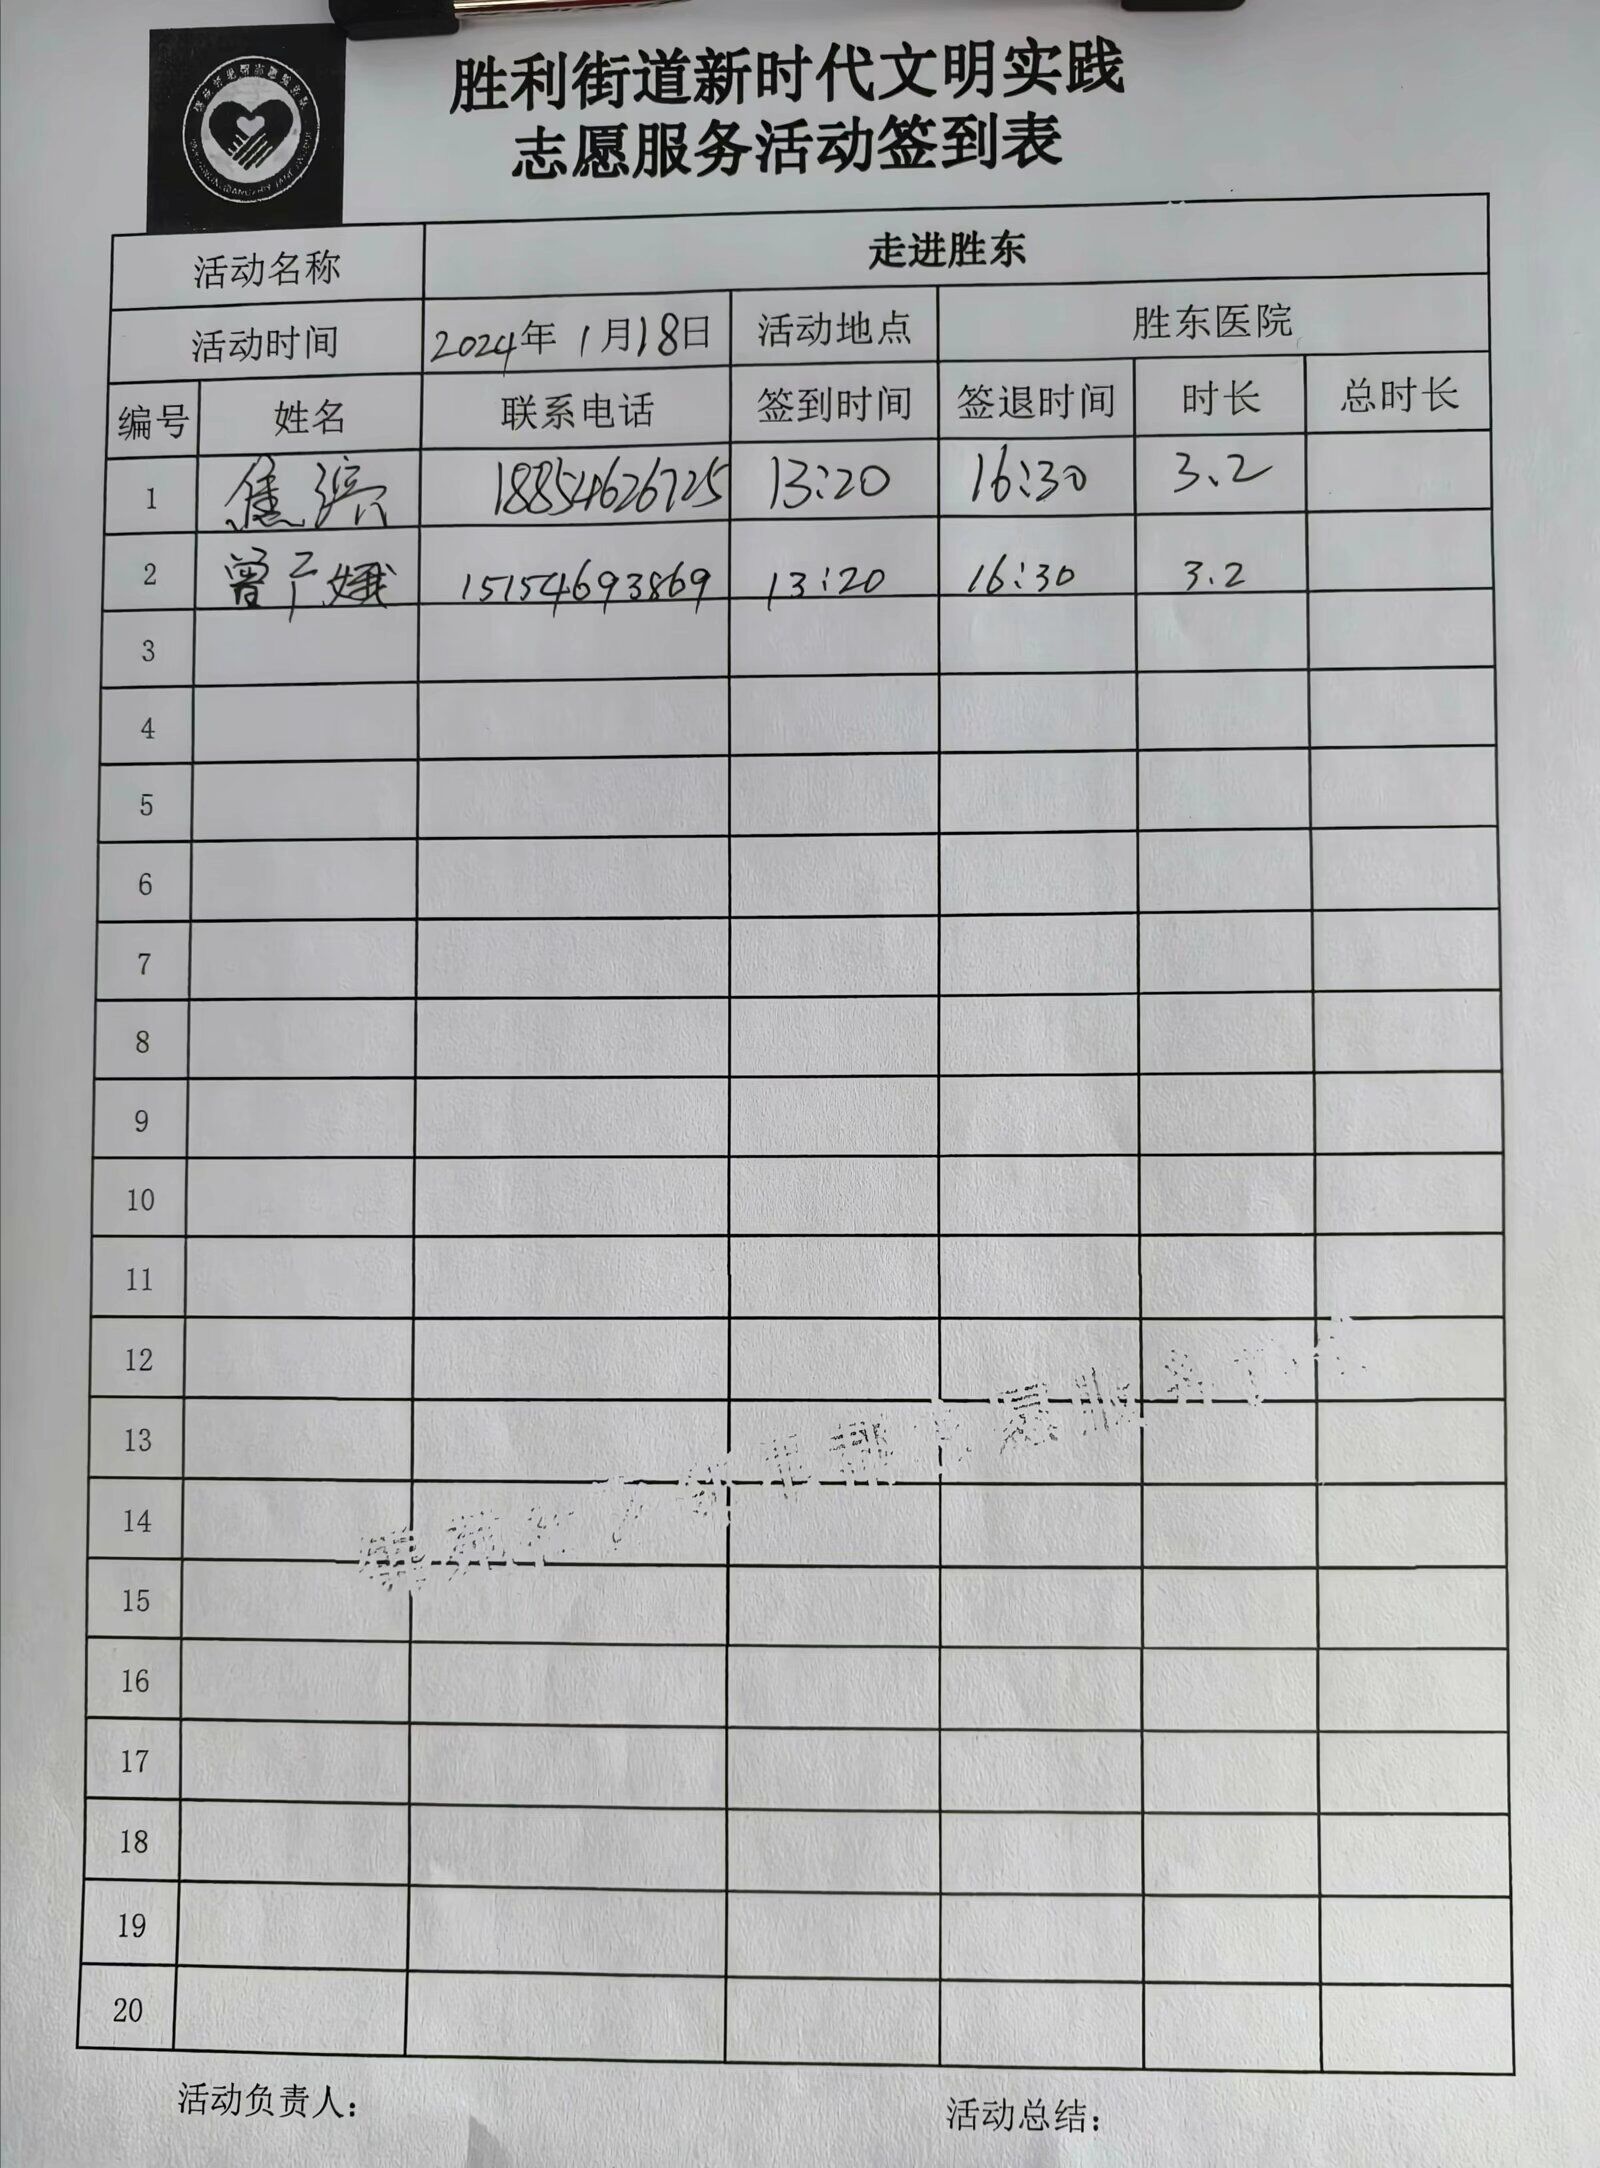 胜利街道新时代文明实践
志愿服务活动签到表
活动名称 走进胜东
活动时间 2024年 1月18日 活动地点 胜东医院
编号 姓名 联系电话 签到时间 签退时间 时长 总时长
1 焦滨 18854626725 13:20 16:30 3.2
2 曾广娥 15154693869 13:20 16:30 3.2
3
4
5
6
7
8
9
10
11
12
13
14
15
16
17
18
19
20
活动负责人： 活动总结：